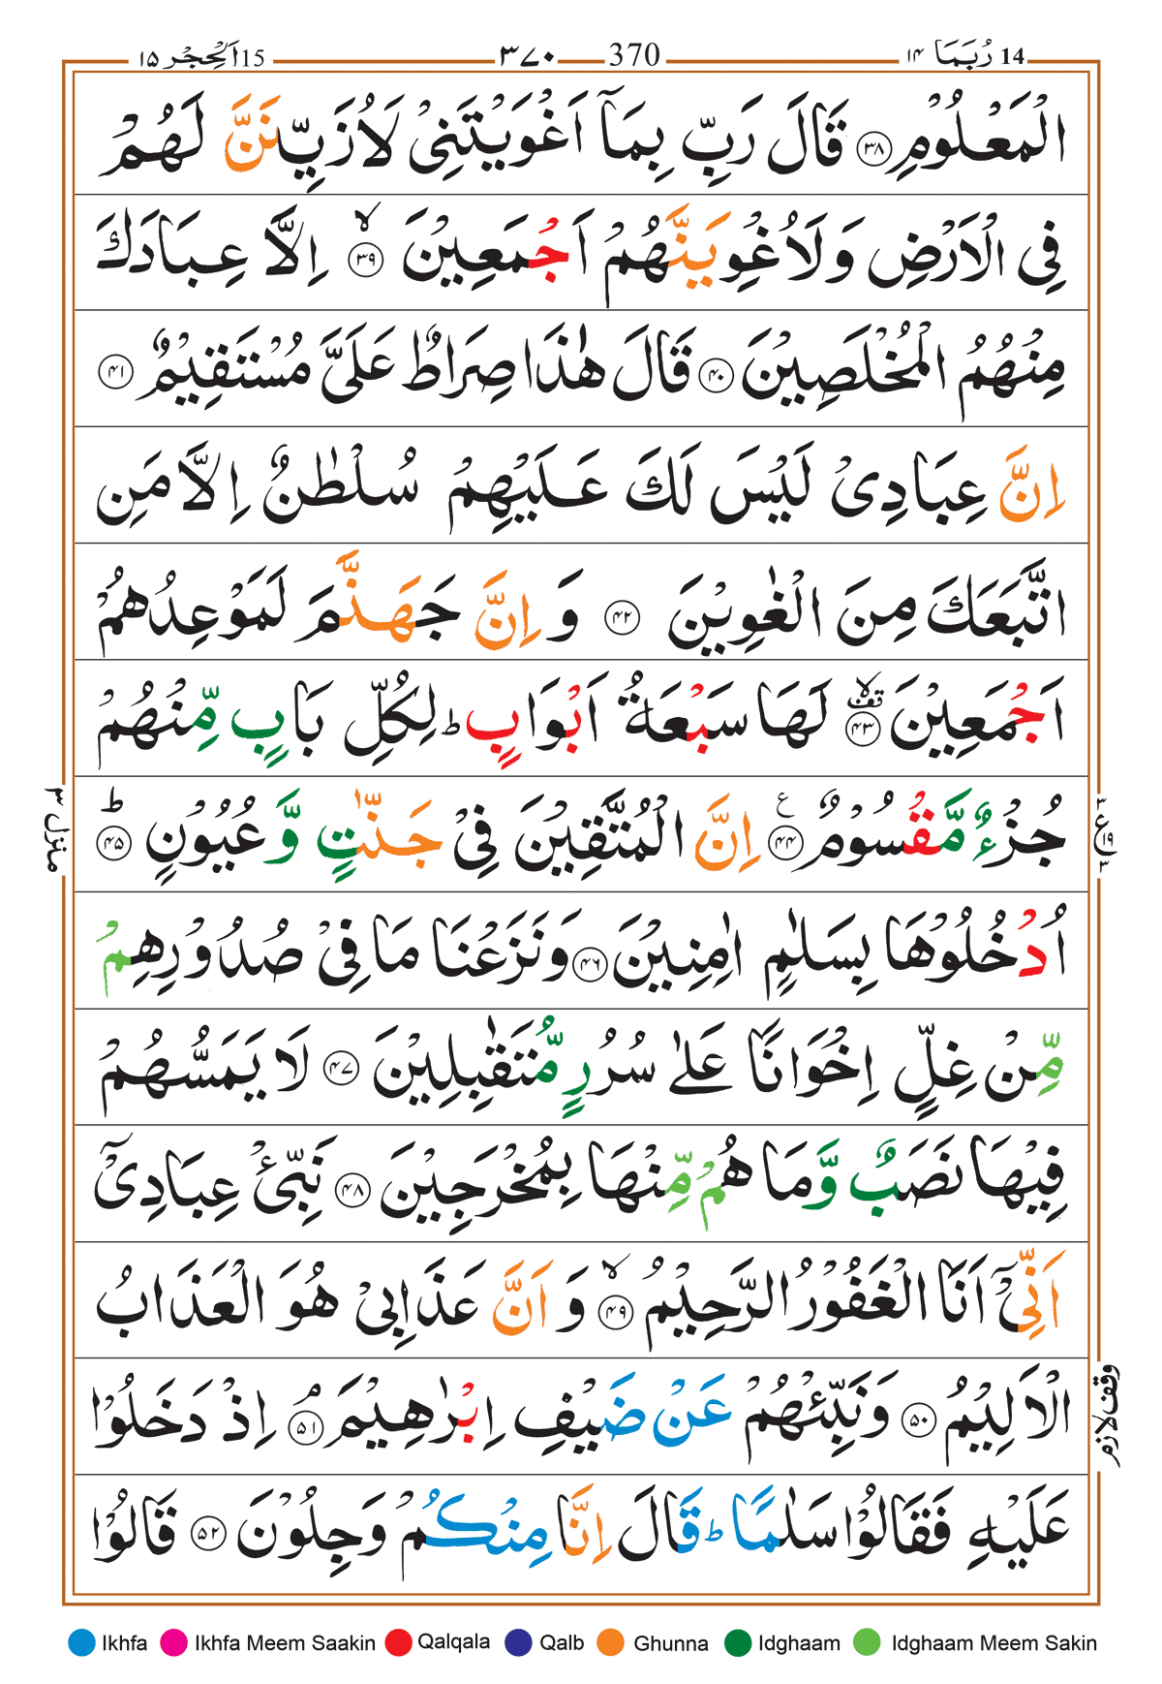 14 رُبَمَا ۱۴
370 ۳۷۰
15 اَلْحِجْر ۱۵
الْمَعْلُوْمِ ﴿۳۸﴾ قَالَ رَبِّ بِمَاۤ اَغْوَیْتَنِیْ لَاُزَیِّنَنَّ لَهُمْ
فِی الْاَرْضِ وَلَاُغْوِیَنَّهُمْ اَجْمَعِیْنَ ۙ﴿۳۹﴾ اِلَّا عِبَادَكَ
مِنْهُمُ الْمُخْلَصِیْنَ ﴿۴۰﴾ قَالَ هٰذَا صِرَاطٌ عَلَیَّ مُسْتَقِیْمٌ ﴿۴۱﴾
اِنَّ عِبَادِیْ لَیْسَ لَكَ عَلَیْهِمْ سُلْطٰنٌ اِلَّا مَنِ
اتَّبَعَكَ مِنَ الْغٰوِیْنَ ﴿۴۲﴾ وَ اِنَّ جَهَنَّمَ لَمَوْعِدُهُمْ
اَجْمَعِیْنَ ۙ قف ﴿۴۳﴾ لَهَا سَبْعَةُ اَبْوَابٍ ؕ لِكُلِّ بَابٍ مِّنْهُمْ
جُزْءٌ مَّقْسُوْمٌ ع ﴿۴۴﴾ اِنَّ الْمُتَّقِیْنَ فِیْ جَنّٰتٍ وَّ عُیُوْنٍ ؕ﴿۴۵﴾
اُدْخُلُوْهَا بِسَلٰمٍ اٰمِنِیْنَ ﴿۴۶﴾ وَنَزَعْنَا مَا فِیْ صُدُوْرِهِمْ
مِّنْ غِلٍّ اِخْوَانًا عَلٰی سُرُرٍ مُّتَقٰبِلِیْنَ ﴿۴۷﴾ لَا یَمَسُّهُمْ
فِیْهَا نَصَبٌ وَّمَا هُمْ مِّنْهَا بِمُخْرَجِیْنَ ﴿۴۸﴾ نَبِّئْ عِبَادِیْۤ
اَنِّیْۤ اَنَا الْغَفُوْرُ الرَّحِیْمُ ۙ﴿۴۹﴾ وَ اَنَّ عَذَابِیْ هُوَ الْعَذَابُ
الْاَلِیْمُ ﴿۵۰﴾ وَنَبِّئْهُمْ عَنْ ضَیْفِ اِبْرٰهِیْمَ ۘ﴿۵۱﴾ اِذْ دَخَلُوْا
عَلَیْهِ فَقَالُوْا سَلٰمًا ؕ قَالَ اِنَّا مِنْكُمْ وَجِلُوْنَ ﴿۵۲﴾ قَالُوْا
منزل ۳
وقف لازم
Ikhfa Ikhfa Meem Saakin Qalqala Qalb Ghunna Idghaam Idghaam Meem Sakin